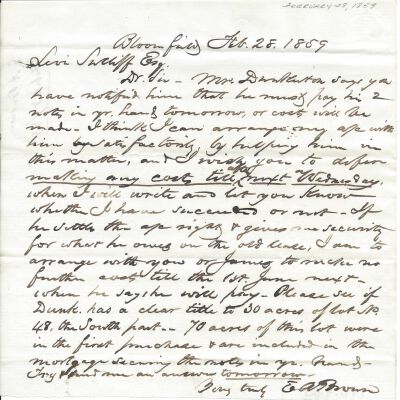 FEBRUARY 28, 1859
Bloomfield, Feb. 28, 1859
Levi Sutliff Esq
Dr. Sir - Mr. Dunkerton says you
have notified him that he must pay his 2
notes in yr. hand tomorrow, or costs will be
made - I think I can arrange my ape with
him satisfactorily by helping him in
this matter, and I wish you to defer
making any costs till after next Wednesday,
when I will write and let you know
whether I have succeeded or not - If
he settles the ape right & gives me security
for what he owes on the old lease, I am to
arrange with you or James to make no
further costs till the 1st June next -
when he says he will pay - Please see if
Dunk. has a clear title to 30 acres of lot No
48, the South part - - 70 acres of this lot were
in the first purchase & are included in the
mortgage securing the notes in yr. hand -
Try & send me an answer tomorrow -
Very truly E A Brown